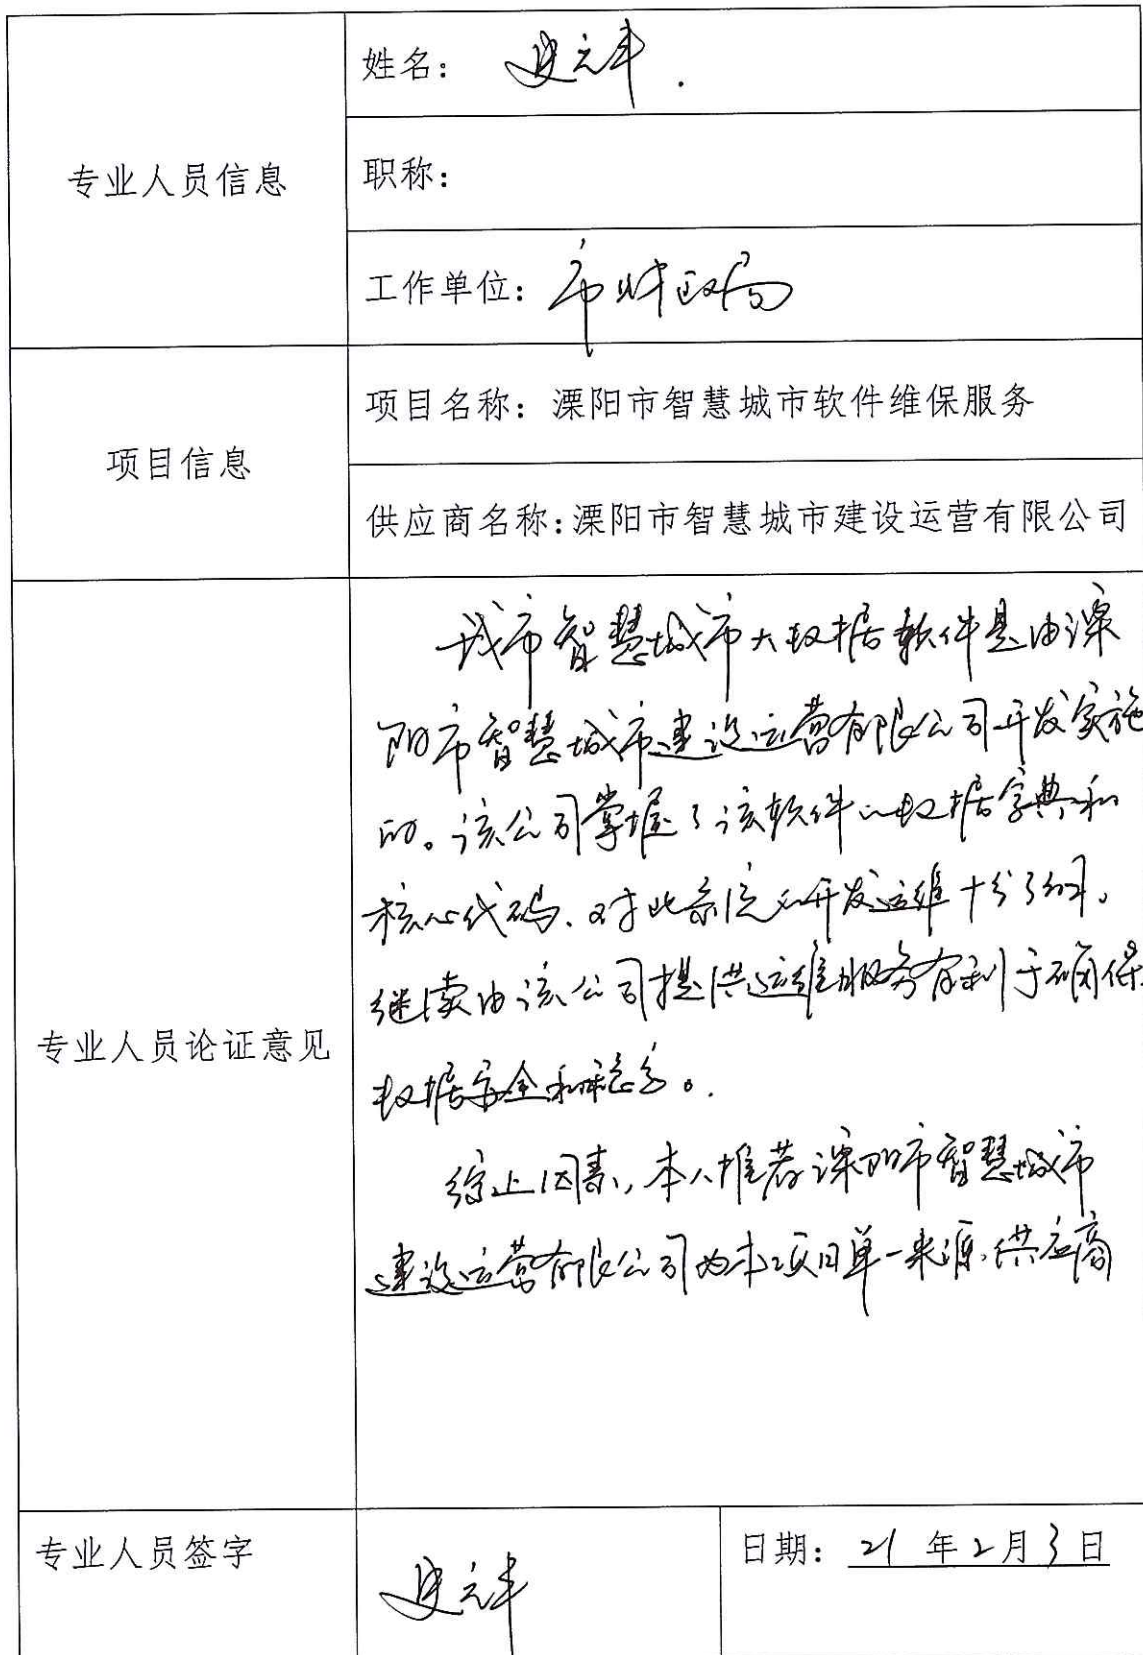 姓名：史元丰
专业人员信息
职称：
工作单位：市财政局
项目信息
项目名称：溧阳市智慧城市软件维保服务
供应商名称:溧阳市智慧城市建设运营有限公司
专业人员论证意见
我市智慧城市大数据软件是由溧
阳市智慧城市建设运营有限公司开发实施
的。该公司掌握了该软件的数据字典和
核心代码、对此系统的开发运维十分了解。
继续由该公司提供运维服务有利于确保
数据安全和稳定。
综上因素，本人推荐溧阳市智慧城市
建设运营有限公司为本项目单一来源供应商
专业人员签字
史元丰
日期：21年2月3日